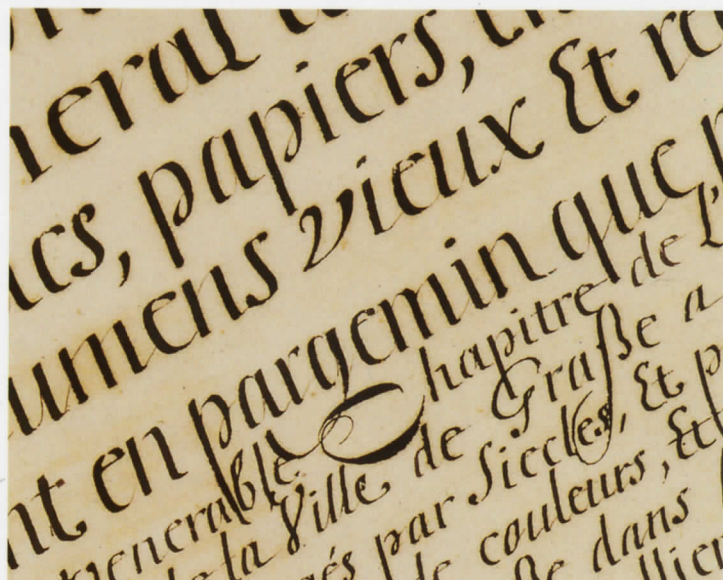 neral
acs, papiers,
umens vieux Et
nt en pargemin que
venerable Chapitre de
de la Ville de Graße a
gés par Siecles, Et
de couleurs, Et
dans